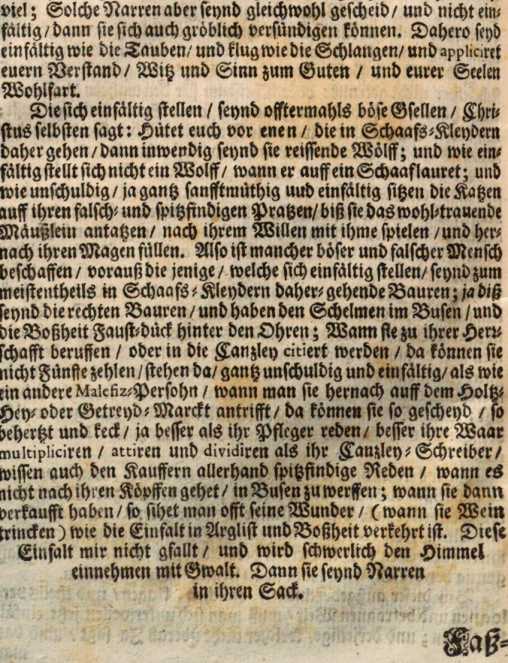 viel; Solche Narren aber seynd gleichwohl gescheid/ und nicht ein-
fältig/ dann sie sich auch gröblich versündigen können. Dahero seyd
einfältig wie die Tauben/ und klug wie die Schlangen/ und appliciret
euern Verstand/ Witz und Sinn zum Guten / und eurer Seelen
Wohlfart.
Die sich einfältig stellen / seynd offtermahls böse Gsellen / Chri-
stus selbsten sagt: Hütet euch vor enen/ die in Schaafs-Kleydern
daher gehen/ dann inwendig seynd sie reissende Wölff; und wie ein-
fältig stellt sich nicht ein Wolff/ wann er auff ein Schaaf lauret; und
wie unschuldig/ ja gantz sanfftmüthig und einfältig sitzen die Katzen
auff ihren falsch- und spitzfindigen Pratzen/ biß sie das wohl-trauende
Mäußlein antatzen/ nach ihrem Willen mit ihme spielen/ und her-
nach ihren Magen füllen. Also ist mancher böser und falscher Mensch
beschaffen/ vorauß die jenige/ welche sich einfältig stellen/ seynd zum
meistentheils in Schaafs-Kleydern daher-gehende Bauren; ja diß
seynd die rechten Bauren/ und haben den Schelmen im Busen/ und
die Boßheit Faust-dück hinter den Ohren; Wann sie zu ihrer Herr-
schafft beruffen / oder in die Cantzley citiert werden/ da können sie
nicht Fünffe zehlen/ stehen da/ gantz unschuldig und einfältig/ als wie
ein andere Malefiz-Persohn/ wann man sie hernach auff dem Holtz-
Hey- oder Getreyd-Marckt antrifft/ da können sie so gescheyd / so
behertzt und keck/ ja besser als ihr Pfleger reden/ besser ihre Waar
multipliciren / attiren und dividiren als ihr Cantzley-Schreiber/
wissen auch den Kauffern allerhand spitzfindige Reden / wann es
nicht nach ihren Köpffen gehet/ in Busen zu werffen; wann sie dann
verkaufft haben/ so sihet man offt seine Wunder/ (wann sie Wein
trincken) wie die Einfalt in Arglist und Boßheit verkehrt ist. Diese
Einfalt mir nicht gfallt/ und wird schwerlich den Himmel
einnehmen mit Gwalt. Dann sie seynd Narren
in ihren Sack.
Faß-